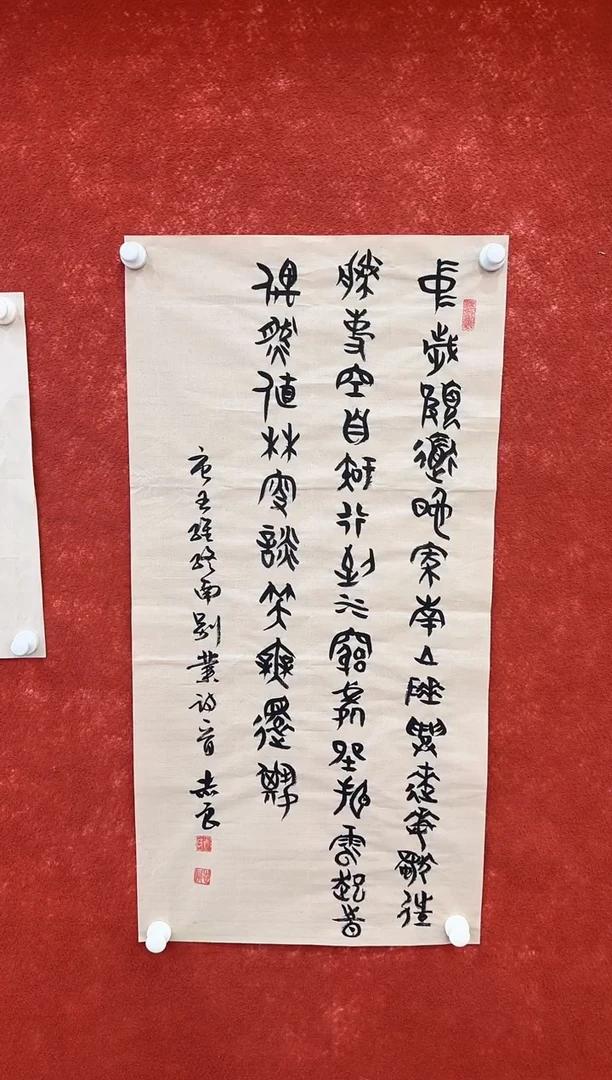 中歲頗道晚家南山陲興來每獨往
勝事空自知行到水窮處坐看雲起時
偶然值林叟談笑無還期
唐王維終南別業詩一首